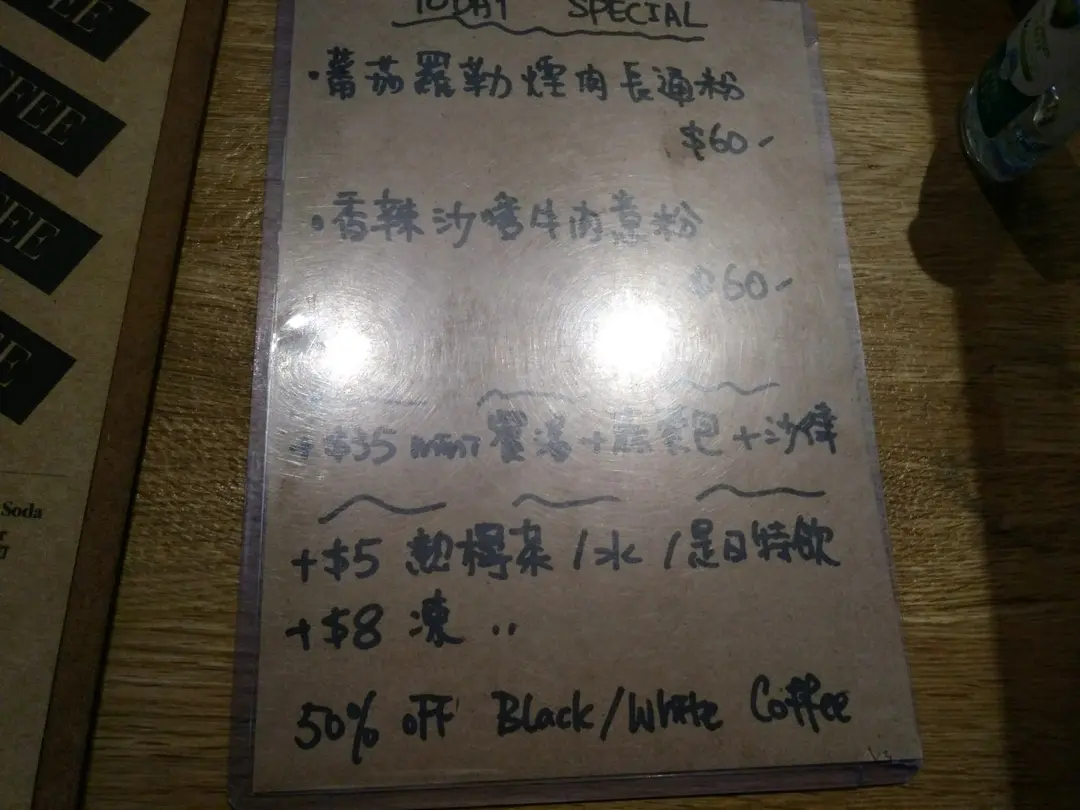 TODAY SPECIAL
·蕃茄羅勒煙肉長通粉
$60-
·香辣沙嗲牛肉意粉
$60-
+$35 MINI 餐湯+蒜蓉包+沙律
+$5 熱檸茶/水/是日特飲
+$8 凍 ..
50% OFF Black/White Coffee
COFFEE
FEE
EE
E
Soda